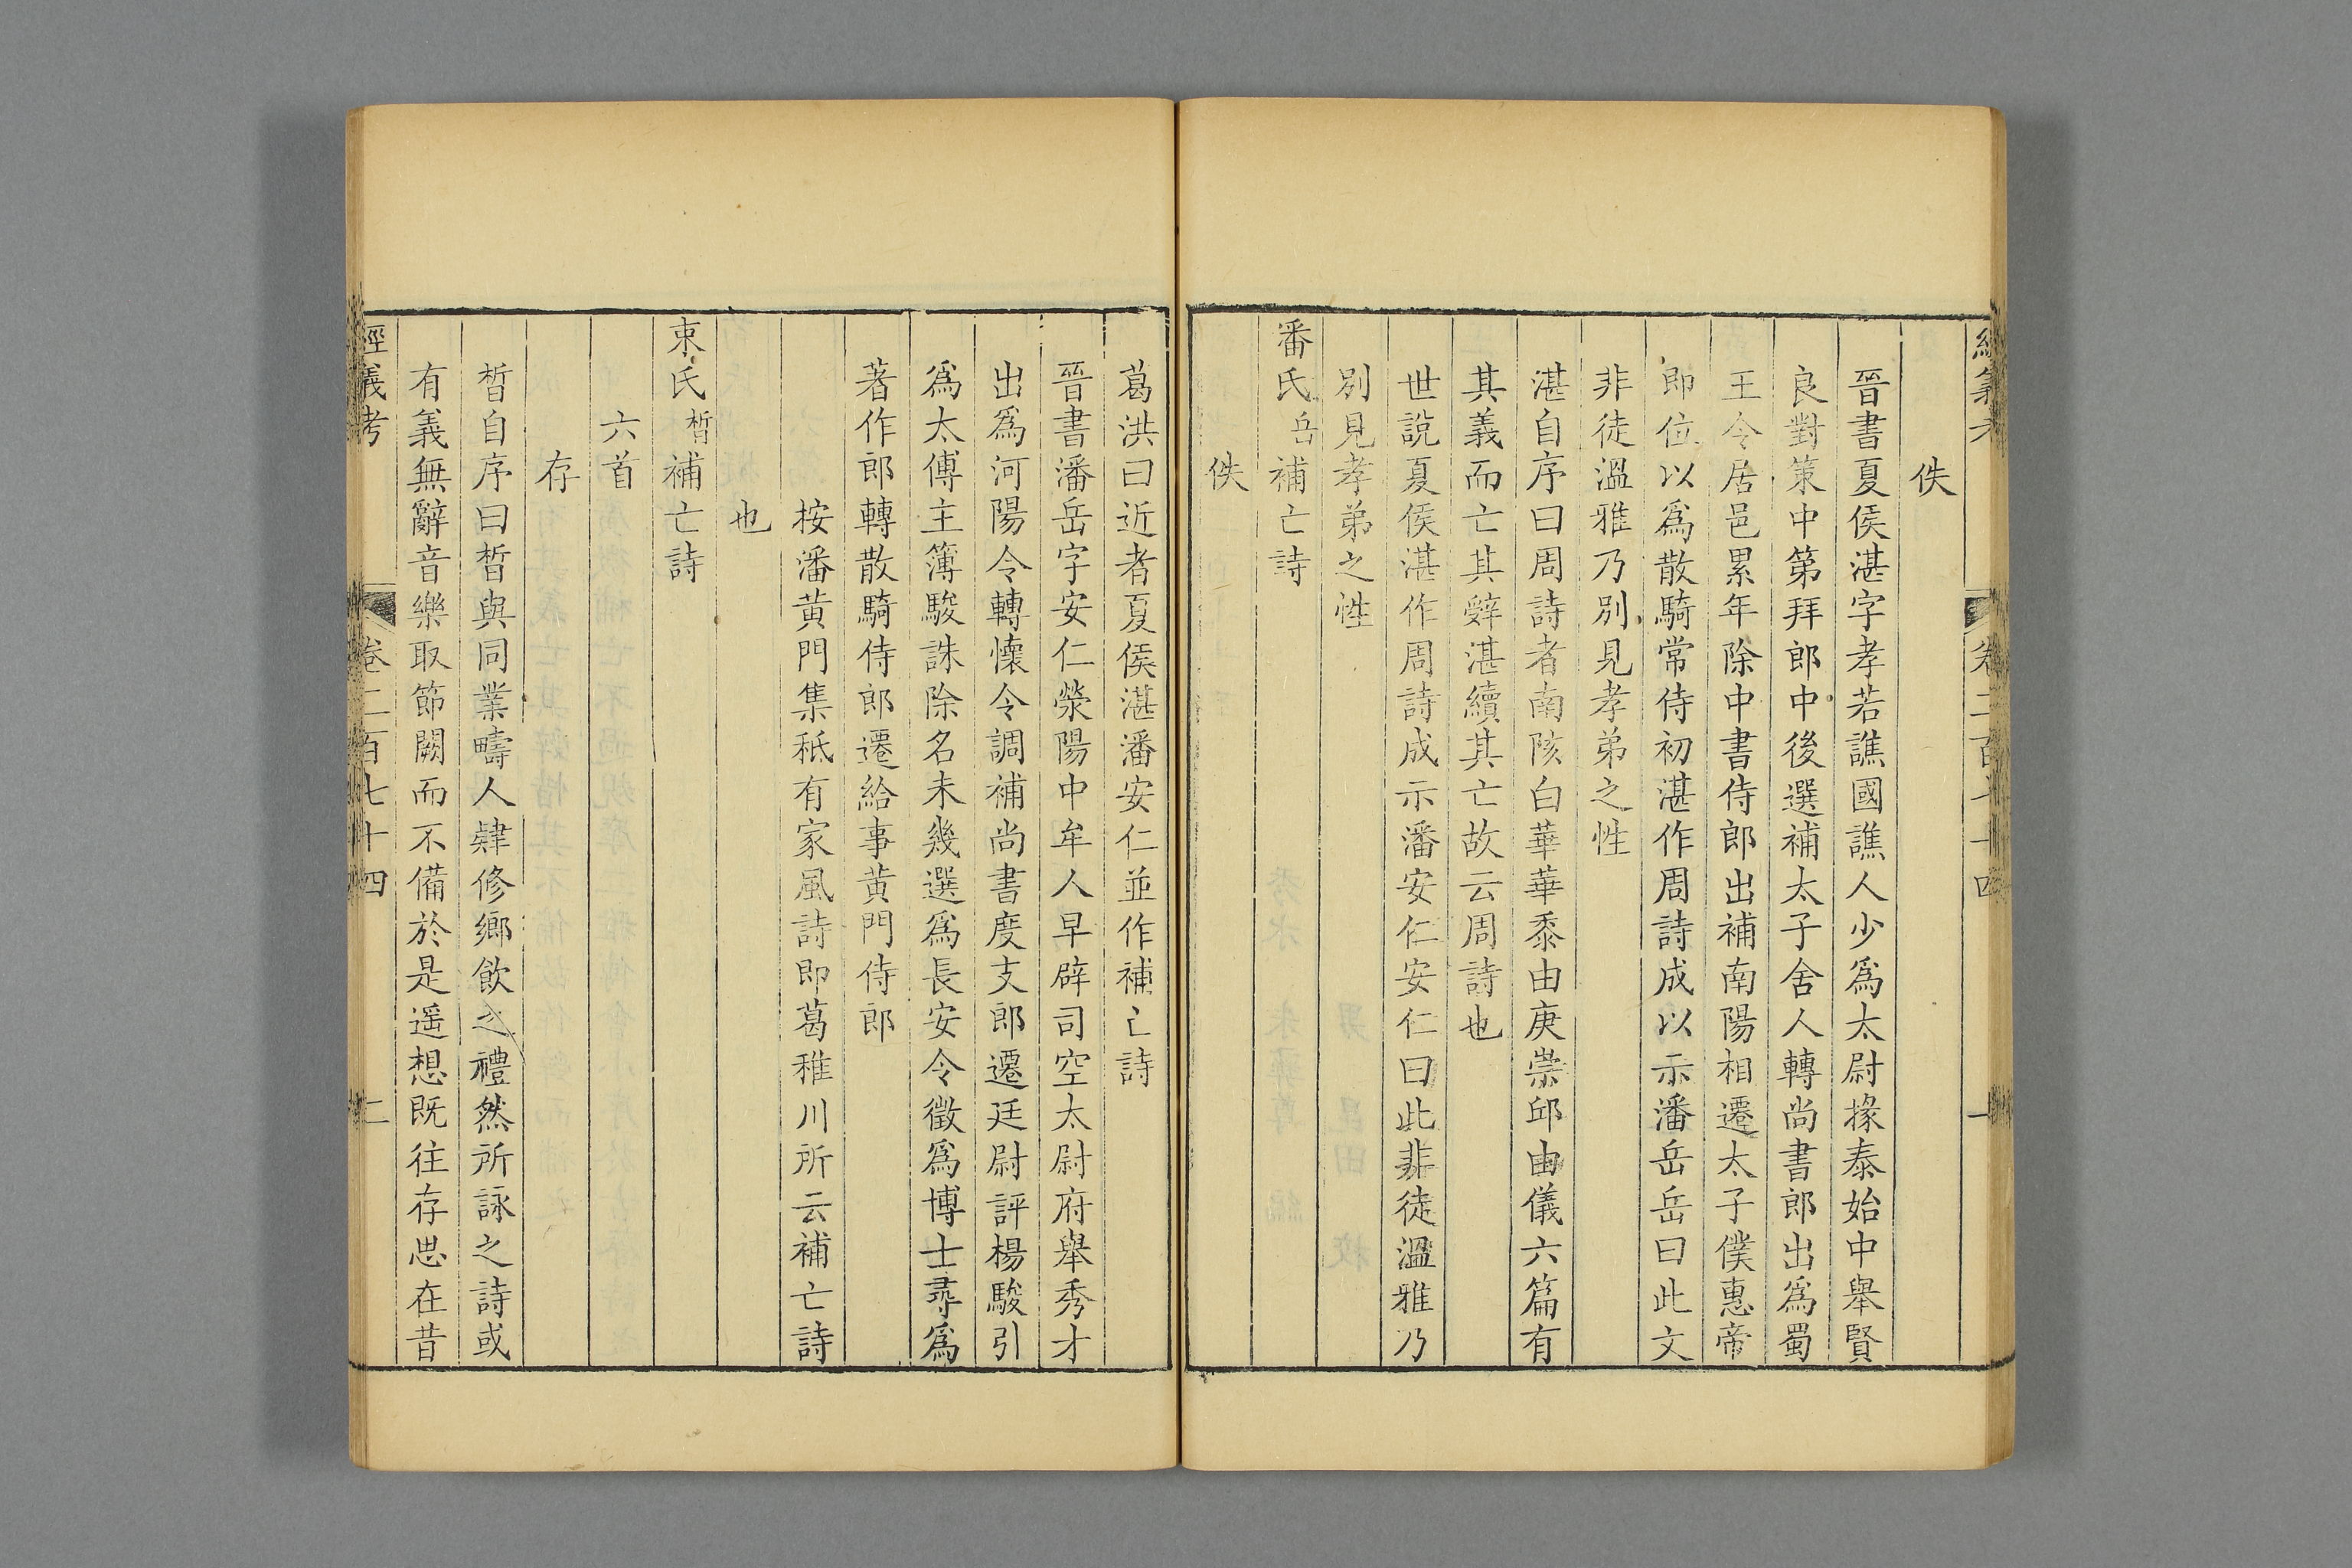 經義考 卷二百七十四 一
佚
晉書夏侯湛字孝若譙國譙人少爲太尉掾泰始中舉賢
良對策中第拜郎中後選補太子舍人轉尚書郎出爲蜀
王令居邑累年除中書侍郎出補南陽相遷太子僕惠帝
即位以爲散騎常侍初湛作周詩成以示潘岳岳曰此文
非徒溫雅乃別見孝弟之性
湛自序曰周詩者南陔白華華黍由庚崇邱由儀六篇有
其義而亡其辭湛續其亡故云周詩也
世說夏侯湛作周詩成示潘安仁安仁曰此非徒溫雅乃
別見孝弟之性
潘氏岳補亡詩
佚
葛洪曰近者夏侯湛潘安仁並作補亡詩
晉書潘岳字安仁滎陽中牟人早辟司空太尉府舉秀才
出爲河陽令轉懷令調補尚書度支郎遷廷尉評楊駿引
爲太傅主簿駿誅除名未幾選爲長安令徵爲博士尋爲
著作郎轉散騎侍郎遷給事黃門侍郎
按潘黃門集秪有家風詩即葛稚川所云補亡詩
也
束氏晳補亡詩
六首
存
晳自序曰晳與同業疇人肄修鄉飲之禮然所詠之詩或
有義無辭音樂取節闕而不備於是遥想既往存思在昔
經義考 卷二百七十四 二